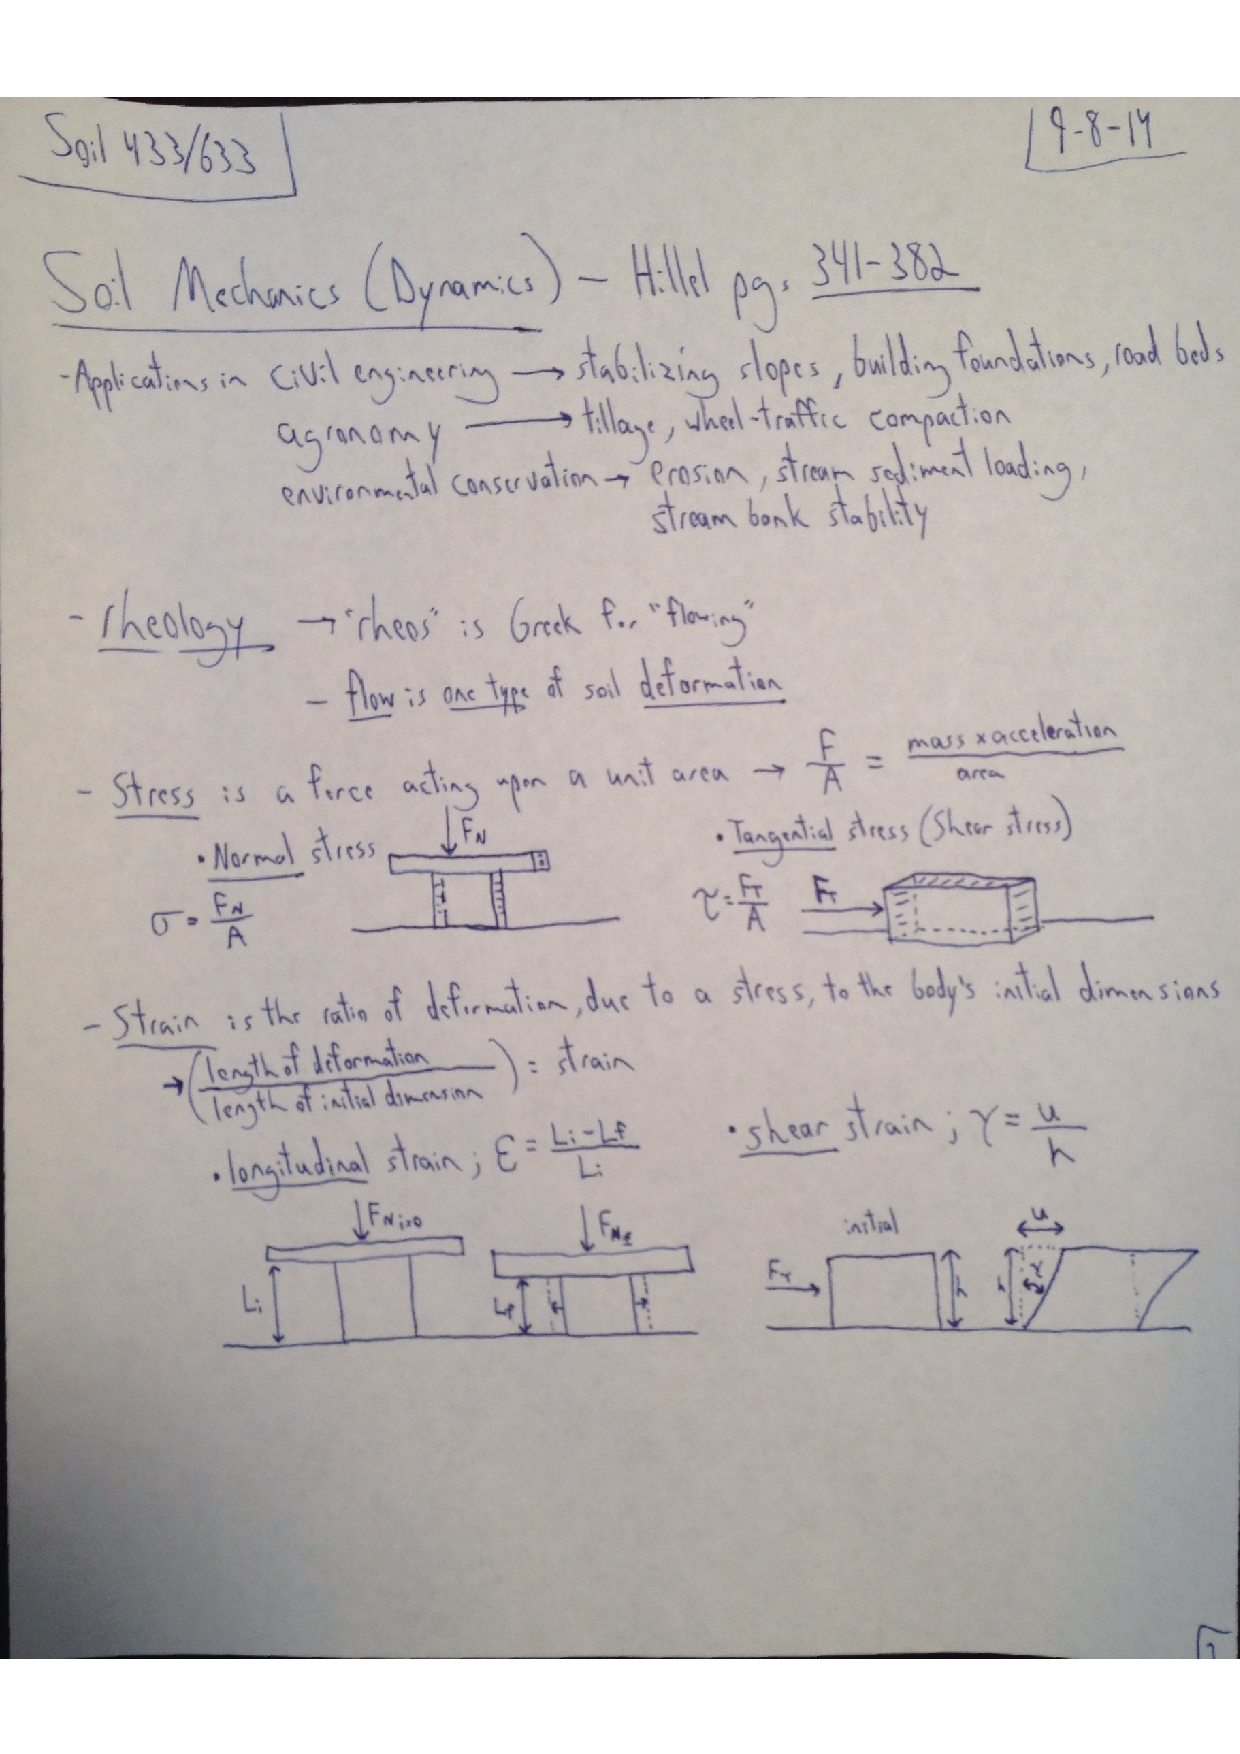 Soil 433/633
9-8-14
Soil Mechanics (Dynamics) – Hillel pgs 341-382
-Applications in civil engineering → stabilizing slopes, building foundations, road beds
agronomy → tillage, wheel-traffic compaction
environmental conservation → erosion, stream sediment loading,
stream bank stability
- rheology → "rheos" is Greek for "flowing"
- flow is one type of soil deformation
- Stress is a force acting upon a unit area → F/A = mass x acceleration/area
• Normal stress
FN
• Tangential stress (Shear stress)
σ = FN/A
τ = FT/A
FT
- Strain is the ratio of deformation, due to a stress, to the body's initial dimensions
→ (length of deformation/length of initial dimension) = strain
• longitudinal strain; ε = Li-Lf/Li
• shear strain; γ = u/h
FNi=0
FNf
initial
u
Li
Lf
FT
h
h
γ
1